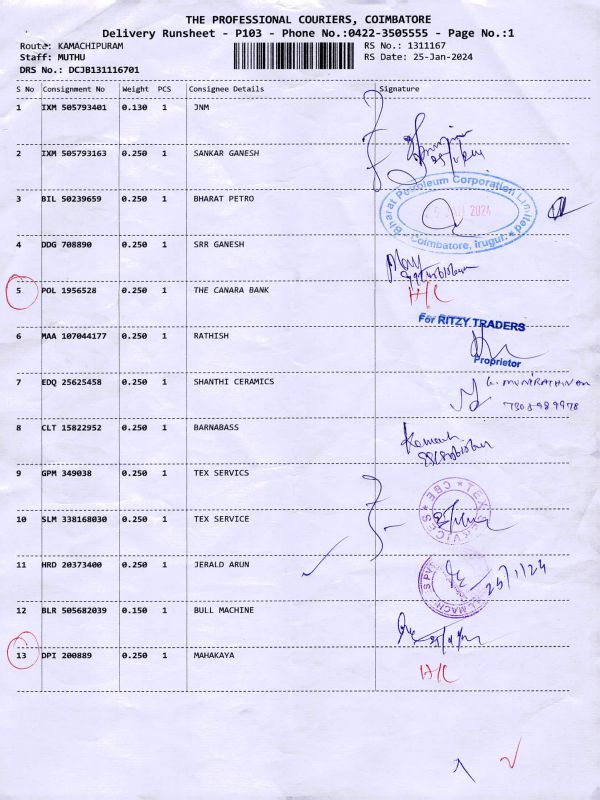 THE PROFESSIONAL COURIERS, COIMBATORE
Delivery Runsheet - P103 - Phone No.:0422-3505555 - Page No.:1
Route: KAMACHIPURAM RS No.: 1311167
Staff: MUTHU RS Date: 25-Jan-2024
DRS No.: DCJB131116701
S No Consignment No Weight PCS Consignee Details Signature
1 IXM 505793401 0.130 1 JNM
2 IXM 505793163 0.250 1 SANKAR GANESH
3 BIL 50239659 0.250 1 BHARAT PETRO
Bharat Petroleum Corporation Limited
2024
Coimbatore, Irugur
4 DDG 708890 0.250 1 SRR GANESH
5 POL 1956528 0.250 1 THE CANARA BANK
For RITZY TRADERS
6 MAA 107044177 0.250 1 RATHISH
Proprietor
7 EDQ 25625458 0.250 1 SHANTHI CERAMICS
8 CLT 15822952 0.250 1 BARNABASS
9 GPM 349038 0.250 1 TEX SERVICS
10 SLM 338168030 0.250 1 TEX SERVICE
* TEX SERVICES * CBE
11 HRD 20373400 0.250 1 JERALD ARUN
25/1/24
12 BLR 505682039 0.150 1 BULL MACHINE
13 DPI 200889 0.250 1 MAHAKAYA